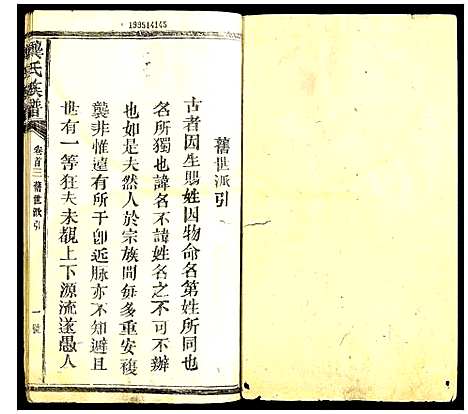 199514145
舊世派引
古者因生賜姓因物命名第姓所同也
名所獨也諱名不諱姓名之不可不辦
也如是夫然人於宗族間每多重安複
襲非惟遠有所于卽近脉亦不知避且
世有一等狂夫未覩上下源流遂愚人
龔氏族譜
卷首三 舊世派引
一號